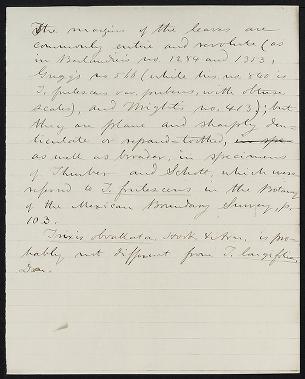 The margins of the leaves are
commonly entire and revolute (as
in Berlandier's no. 1284 and 1353,
Gregg's no 566 (while his no. 560 is
T. frutescens var. pubens, with obtuse
scales), and Wright's no. 413); but
they are plane and sharply den-
ticulate or repand-toothed,
as well as broader, in specimens
of Thurber and Schott, which were
referred to T. frutescens in the Botany
of the Mexican Boundary Survey, p.
103.
Trixis obvallata, Hook. & Arn., is pro-
bably not different from T. longifolia,
Don.